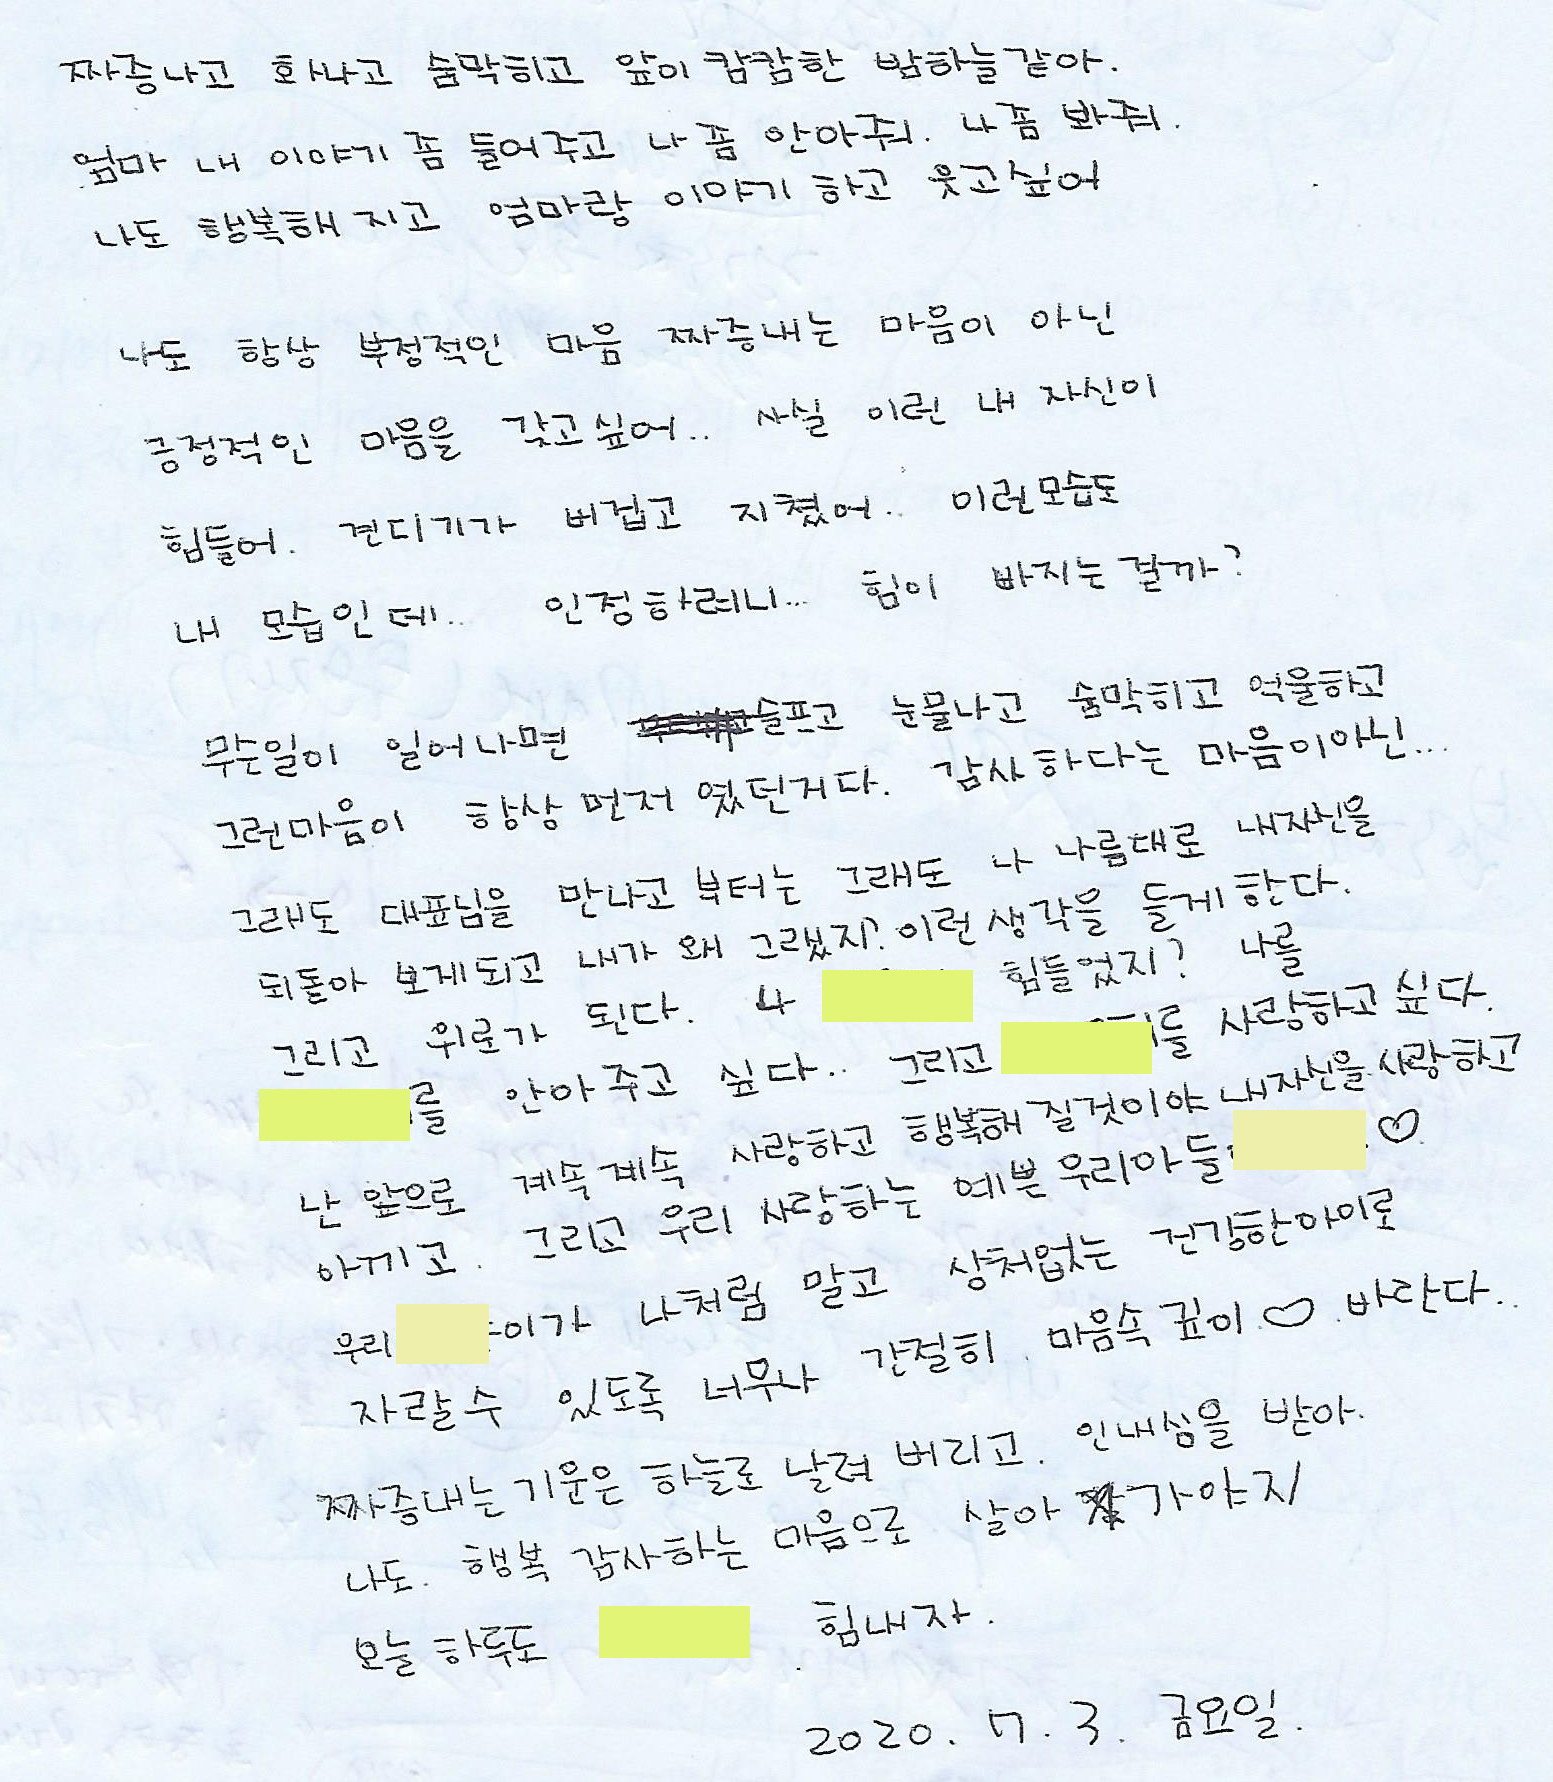 짜증나고 화나고 숨막히고 앞이 캄캄한 밤하늘같아.
엄마 내 이야기 좀 들어주고 나 좀 안아줘. 나좀 봐줘.
나도 행복해 지고 엄마랑 이야기 하고 웃고싶어
나도 항상 부정적인 마음 짜증내는 마음이 아닌
긍정적인 마음을 갖고싶어.. 사실 이런 내 자신이
힘들어. 견디기가 버겁고 지쳤어.. 이런모습도
내 모습인데.. 인정하려니... 힘이 빠지는걸까?
무슨일이 일어나면 슬프고 눈물나고 숨막히고 억울하고
그런마음이 항상 먼저 였던거다. 감사하다는 마음이아닌...
그래도 대표님을 만나고 부터는 그래도 나 나름대로 내자신을
되돌아 보게되고 내가 왜 그랬지? 이런생각을 들게한다.
그리고 위로가 된다. 힘들었지? 나를
를 안아주고 싶다.. 그리고 를 사랑하고싶다.
난 앞으로 계속계속 사랑하고 행복해질것이야 내자신을 사랑하고
아끼고. 그리고 우리 사랑하는 예쁜우리아들 ♡
우리 이가 나처럼 말고 상처없는 건강한아이로
자랄수 있도록 너무나 간절히 마음속깊이.♡.바란다..
짜증내는기운은 하늘로 날려 버리고. 인내심을 받아.
나도. 행복 감사하는 마음으로 살아 가야지
오늘하루도 힘내자.
2020. 7. 3. 금요일.